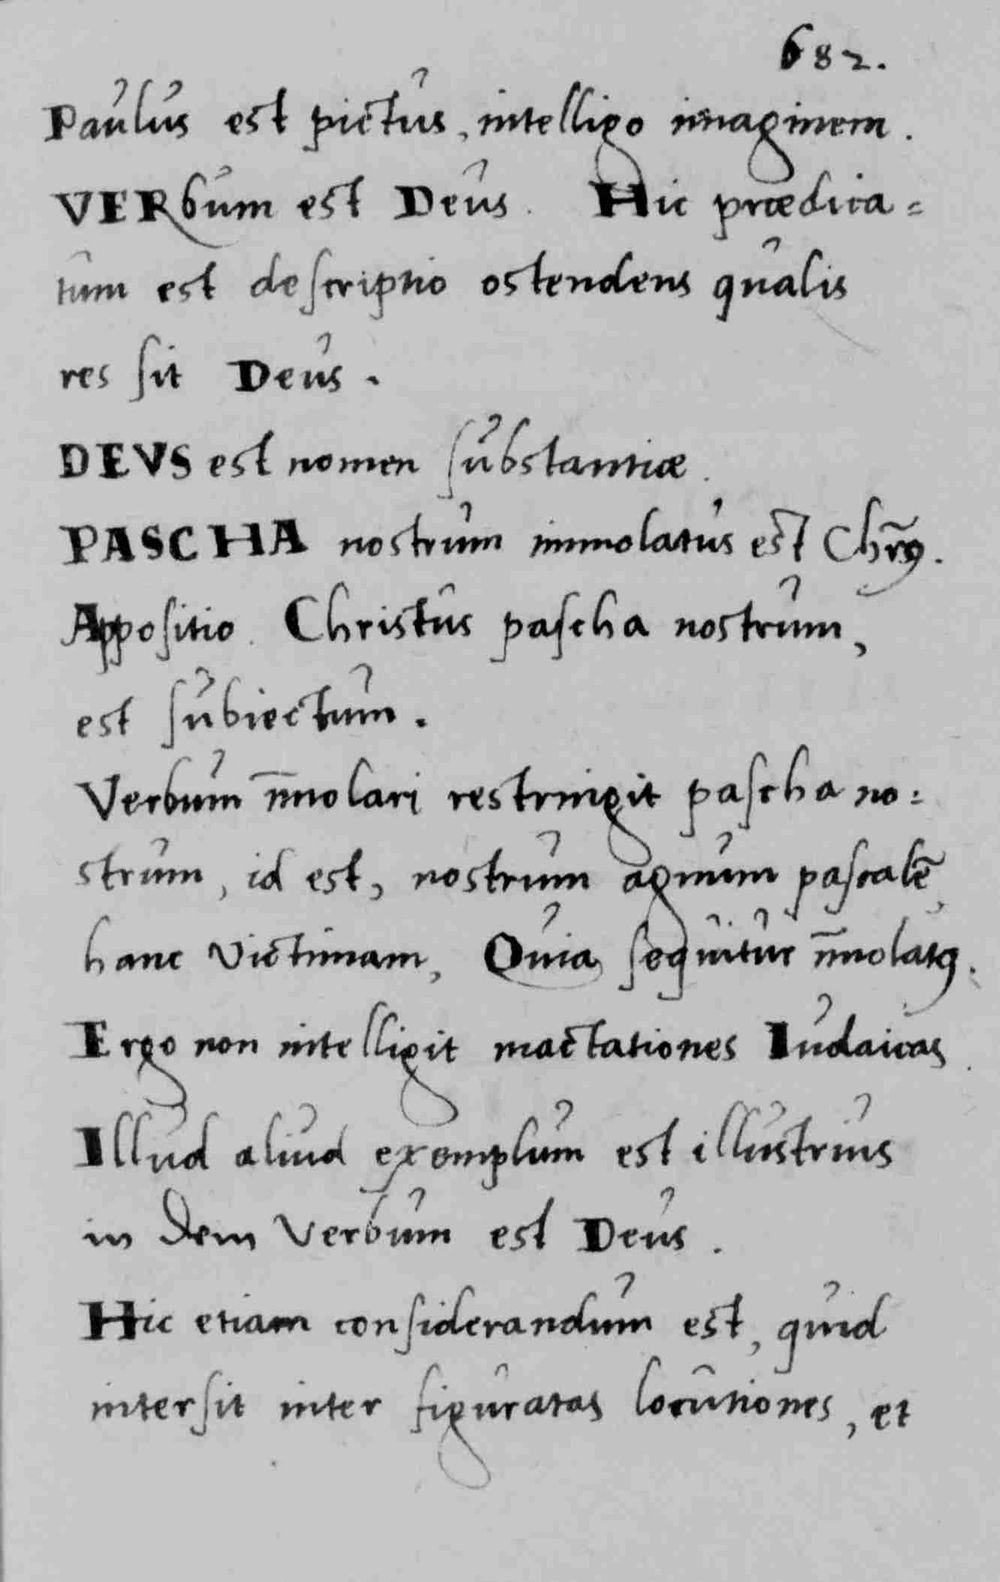 682.
Paulus est pictus, intelligo imaginem.
VERbum est Deus. Hic prædica=
tum est descriptio ostendens qualis
res sit Deus.
DEVS est nomen substantiæ.
PASCHA nostrum immolatus est Chrꝰ.
Appositio. Christus pascha nostrum,
est subiectum.
Verbum im̄olari restringit pascha no=
strum, id est, nostrum agnum pascalē
hanc victimam, Quia sequitur im̄olatꝰ.
Ergo non intelligit mactationes Iudaicas.
Illud aliud exemplum est illustrius
in dem Verbum est Deus.
Hic etiam considerandum est, quid
intersit inter figuratas locutiones, et